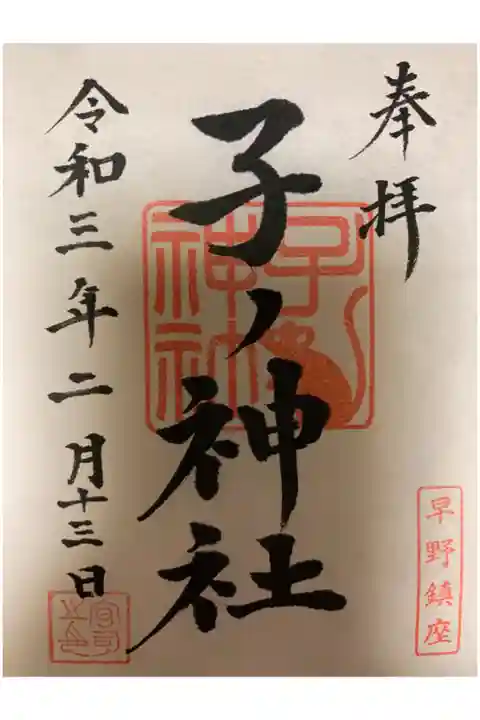 奉拝
早野鎮座
子ノ神社
子ノ神社
令和三年二月十三日
宮司之印